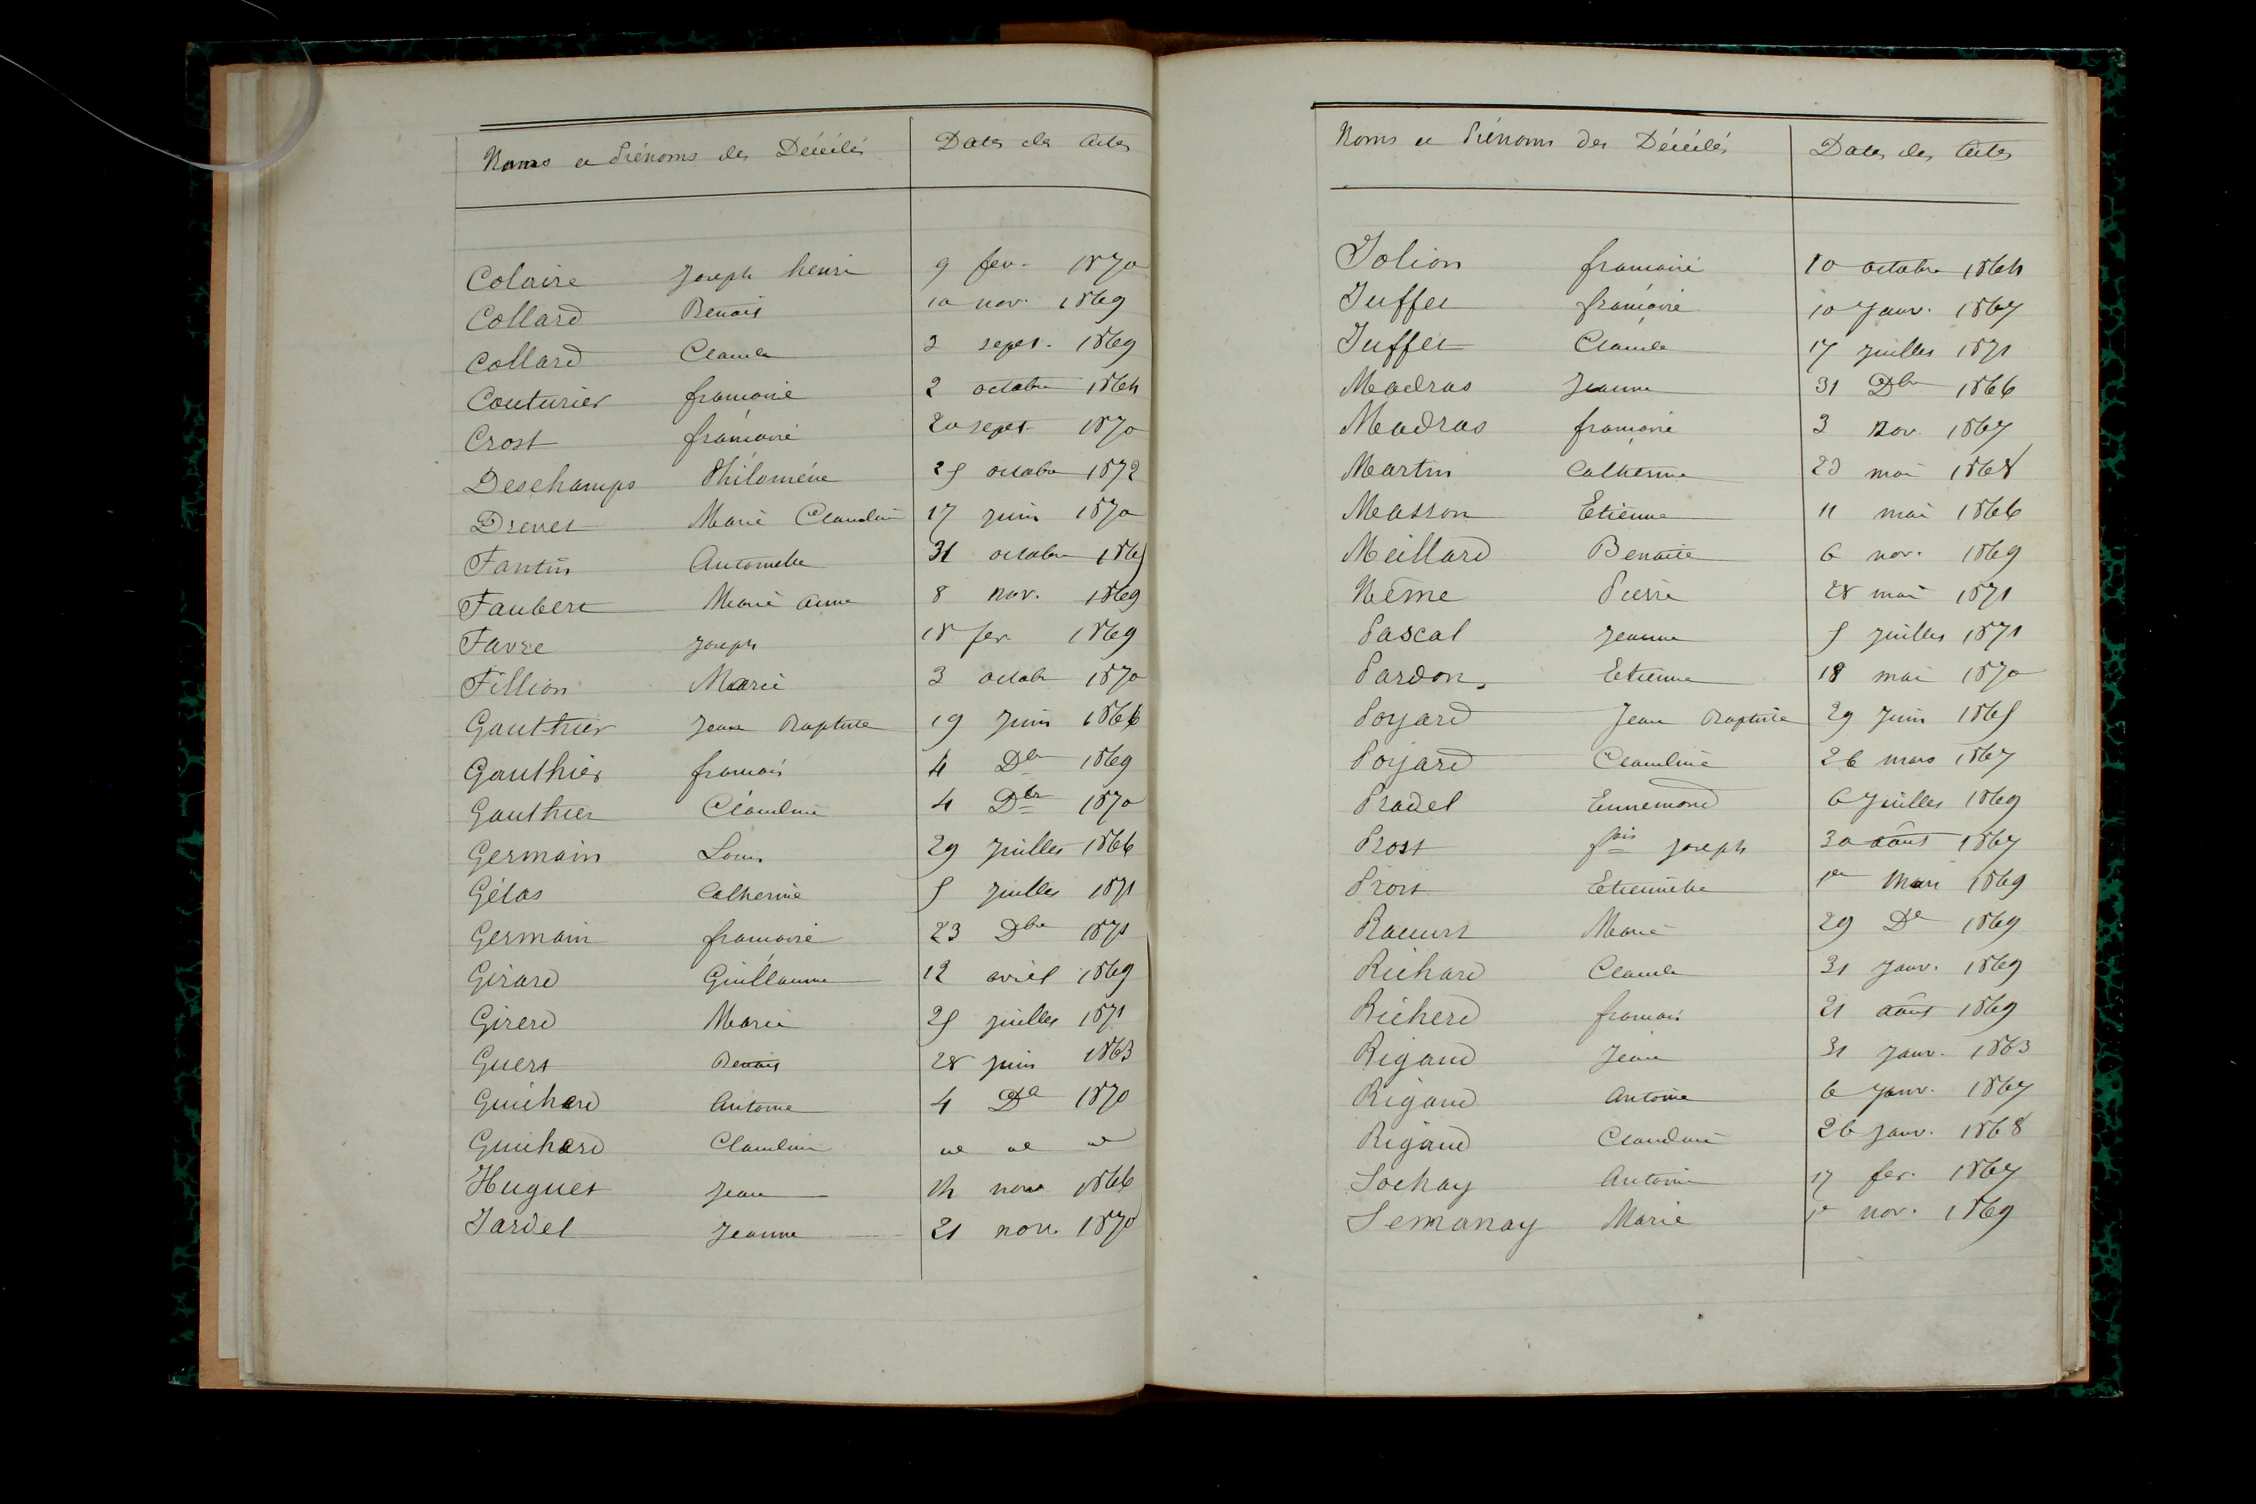 Noms et Prénoms des Décédés Dates des Actes
Colaire Joseph henri 9 fev. 1870
Collard Benoit 10 nov. 1869
Collard Claude 3 sept. 1869
Couturier françoise 2 octobre 1864
Crost françoise 20 sept. 1870
Deschamps Philomène 25 octobre 1872
Drevet Marie Claudine 17 juin 1870
Fantin Antoinette 31 octobre 1865
Faubert Marie anne 8 nov. 1869
Favre Joseph 18 fev. 1869
Fillion Marie 3 octobre 1870
Gauthier Jean Baptiste 19 Juin 1866
Gauthier françois 4 Dbre 1869
Gauthier Claudine 4 Dbre 1870
Germain Louis 29 Juillet 1866
Gélas Catherine 5 juillet 1871
Germain françoise 23 Dbre 1871
Girard Guillaume 12 avril 1869
Girerd Marie 25 juillet 1871
Guers Benoit 28 juin 1863
Guichard Antoine 4 De 1870
Guichard Claudine
Huguet Jean 14 nov 1866
Jardel Jeanne 21 nov. 1870
Noms et Prénoms des Décédés Dates des Actes
Jolion françoise 10 octobre 1864
Juffet françoise 10 Janv. 1867
Juffet Claude 17 juillet 1871
Madras Jeanne 31 Dbre 1866
Madras françoise 3 nov. 1867
Martin Catherine 23 mai 1868
Masson Etienne 11 mai 1866
Meillard Benoite 6 nov. 1869
Nême Pierre 28 mai 1871
Pascal Jeanne 5 juillet 1871
Pardon Etienne 18 mai 1870
Poyard Jean Baptiste 29 Juin 1865
Poyard Claudine 26 mars 1867
Pradel Ennemond 6 Juillet 1869
Prost fois Joseph 30 août 1867
Prost Etiennette 1er Mars 1869
Racurt Marie 29 De 1869
Richard Claude 31 Janv. 1869
Richerd françois 21 août 1869
Rigaud Jean 31 Janv. 1863
Rigaud Antoine 6 Janv. 1867
Rigaud Claudine 26 janv. 1868
Sochay Antoine 17 fev. 1867
Semanay Marie 1er nov. 1869